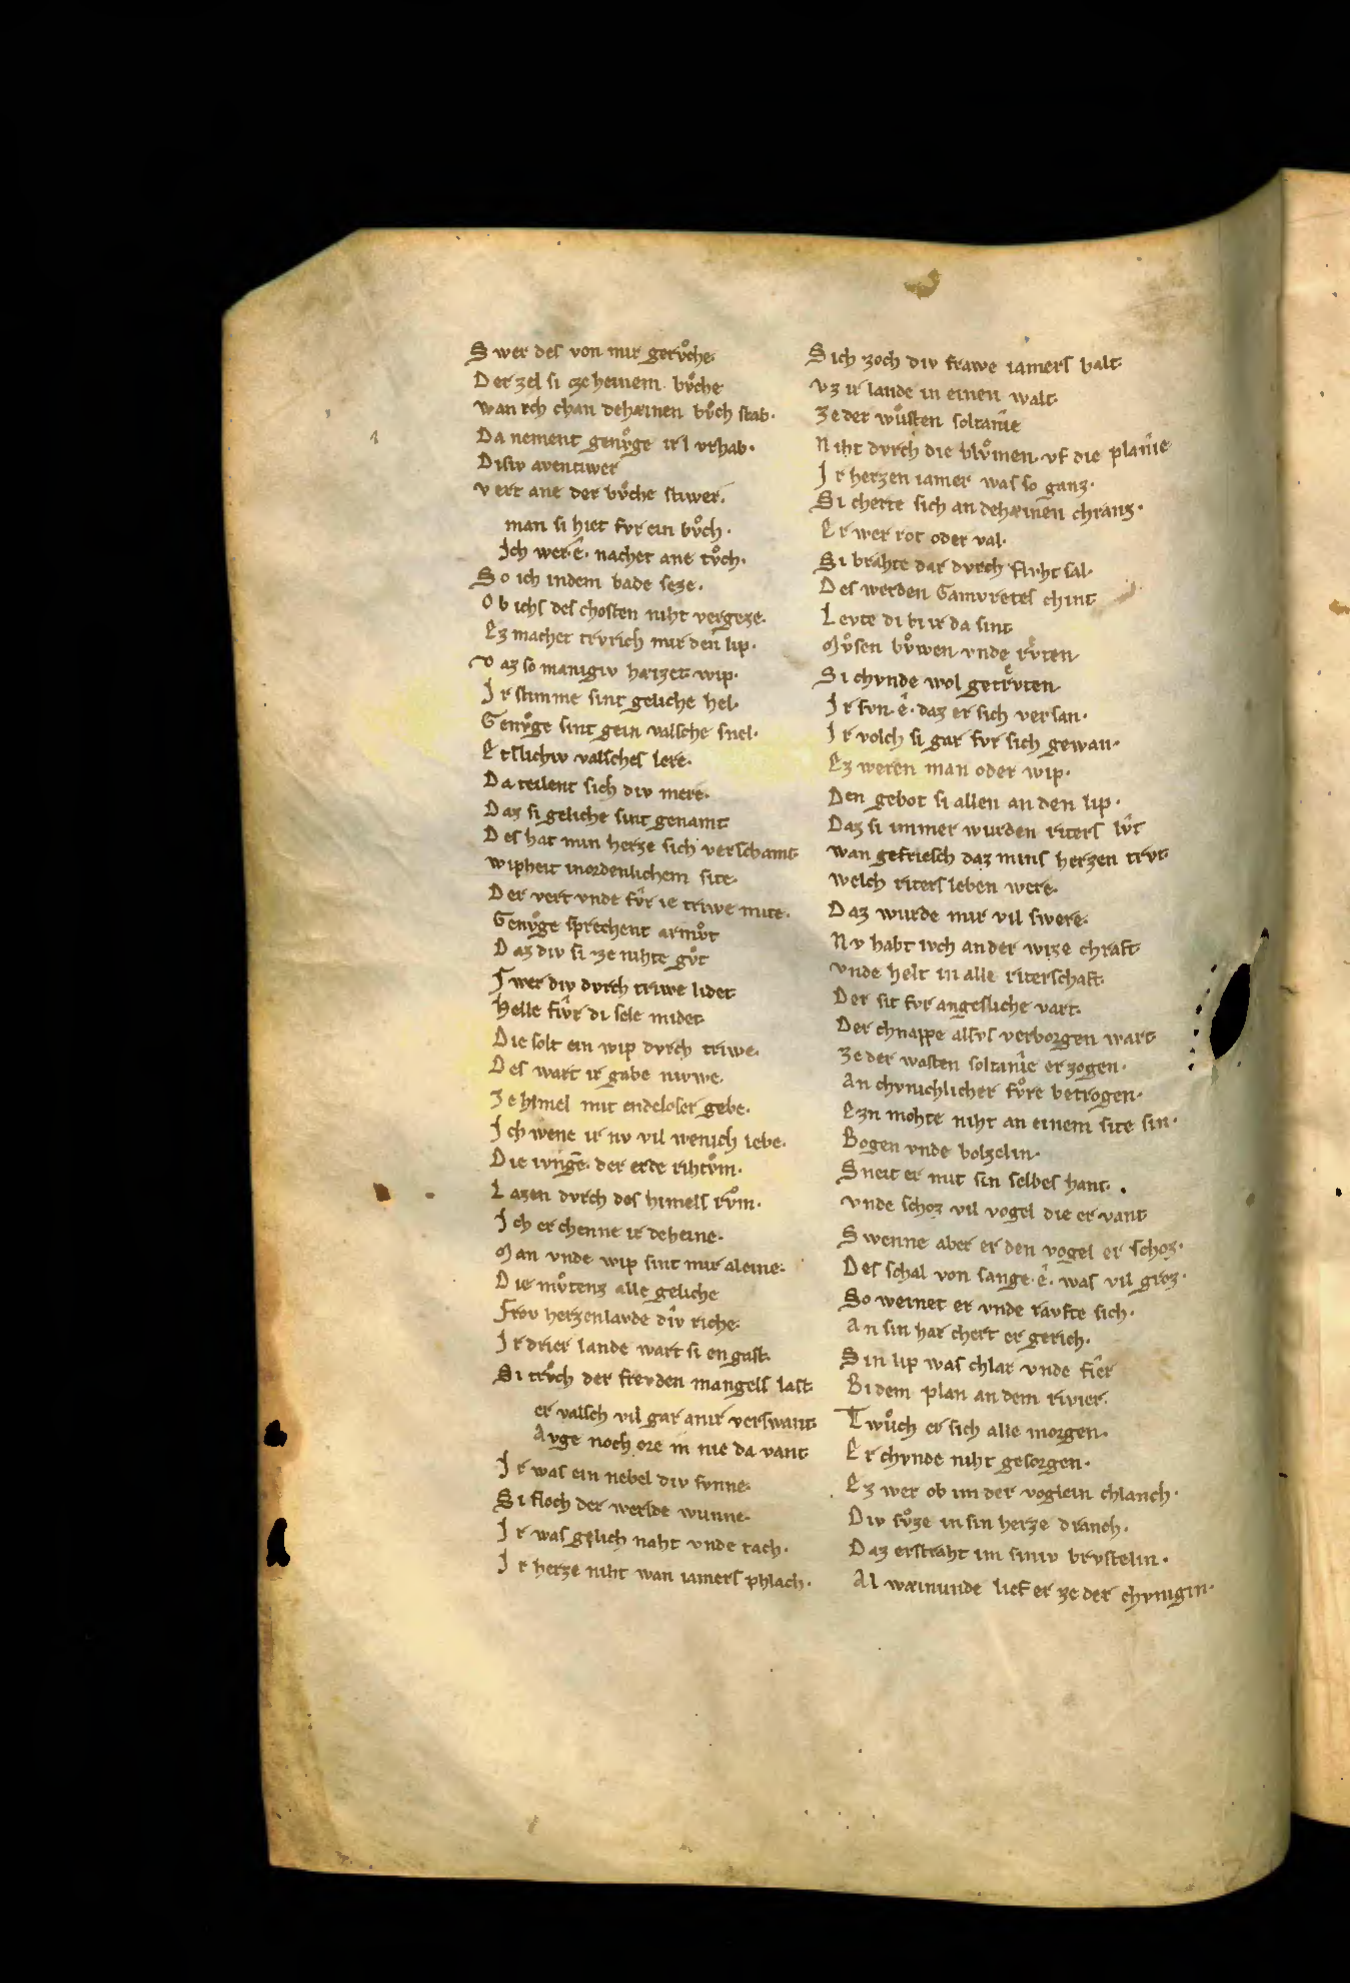 Swer des von mir gervͦche.
Der zel si ze heinem bvͦche
wan ich chan dehæinen bvͦch stab.
Da nement genvͦge ir l vrhab.
Disiv aventiwer
vert ane der bvͦche stiwer.
man si hiet fvr ein bvͦch.
Ich wer.ê. nachet ane tvͦch.
So ich indem bade seze.
Ob ichs des chosten niht vergeze.
Ez machet trvrich mir den lip.
Daz so manigiv hæizet wip.
Ir stimme sint geliche hel.
Genvͦge sint gein valsche snel.
Etslichiv valsches lere.
Da teilent sich div mere.
Daz si geliche sint genamt
Des hat min herze sich verschamt
wipheit inordenlichem site.
Der vert vnde fvͦr ie triwe mite.
Genvͦge sprechent armvͦt
Daz div si ze nihte gvͦt
Swer div dvrch triwe lidet
Helle fiwͦr di sele midet
Die solt ein wip dvrch triwe.
Des wart ir gabe niwe.
Ze himel mit endeloser gebe.
Ich wene ir nv vil wenich lebe.
Die ivngē. der erde rihtvͦm.
Lazen dvrch des himels rvͦm.
Ich er chenne ir deheine.
Man vnde wip sint mir aleine.
Die mvͦtenz alle geliche
Frov herzenlavde div̂ riche.
Ir drier lande wart si en gast.
Si trvͦch der frevden mangels last
er valsch vil gar anir verswant
Avge noch ore in nie da vant
Ir was ein nebel div svnne.
Si floch der werlde wunne.
Ir was gelich naht vnde tach.
Ir herze niht wan iamers phlach.
Sich zoch div frawe iamers balt
vz ir lande in einen walt.
Ze der wuͦsten soltanîe
Niht dvrch die blvͦmen vf die planîe
Ir herzen iamer was so ganz.
Si cherte sich an dehæinen chranz.
Er wer rot oder val.
Si brahte dar dvrch flvht sal.
Des werden Gamvretes chint
Levte di bi ir da sint
Mvͦsen bvͦwen vnde rvͤten
Si chvnde wol getrvͤten
Ir svn.ê. daz er sich versan.
Ir volch si gar fvr sich gewan.
Ez weren man oder wip.
Den gebot si allen an den lip.
Daz si immer wurden riters lv̂t
wan gefriesch daz mins herzen trvt.
welch riters leben were.
Daz wurde mir vil swere.
Nv habt ivch an der wize chraft
vnde helt in alle riterschaft.
Der sit fvr angesliche vart.
Der chnappe alsvs verborgen wart
Ze der wasten soltanîe er zogen.
An chvnichlicher fvͦre betrogen.
Ezn mohte niht an einem site sin.
Bogen vnde bolzelin.
Sneit er mit sin selbes hant.
vnde schoz vil vogel die er vant
Swenne aber er den vogel er schoz.
Des schal von sange.ê. was vil groz.
So weinet er vnde ravfte sich.
An sin har chert er gerich.
Sin lip was chlar vnde fîer
Bi dem plan an dem rivier.
Twuͦch er sich alle morgen.
Er chvnde niht gesorgen.
Ez wer ob im der voglein chlanch.
Div svͦze in sin herze dranch.
Daz erstraht im siniv brvstelin.
Al wæinunde lief er ze der chvnigin.